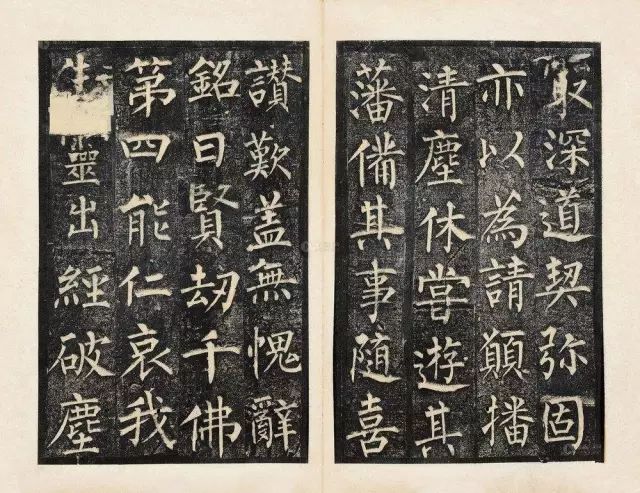 最深道契弥固
亦以為請願播
清塵休甞遊其
藩備其事隨喜
讃歎盖無愧辭
銘曰賢劫千佛
第四能仁哀我
生靈出經破塵